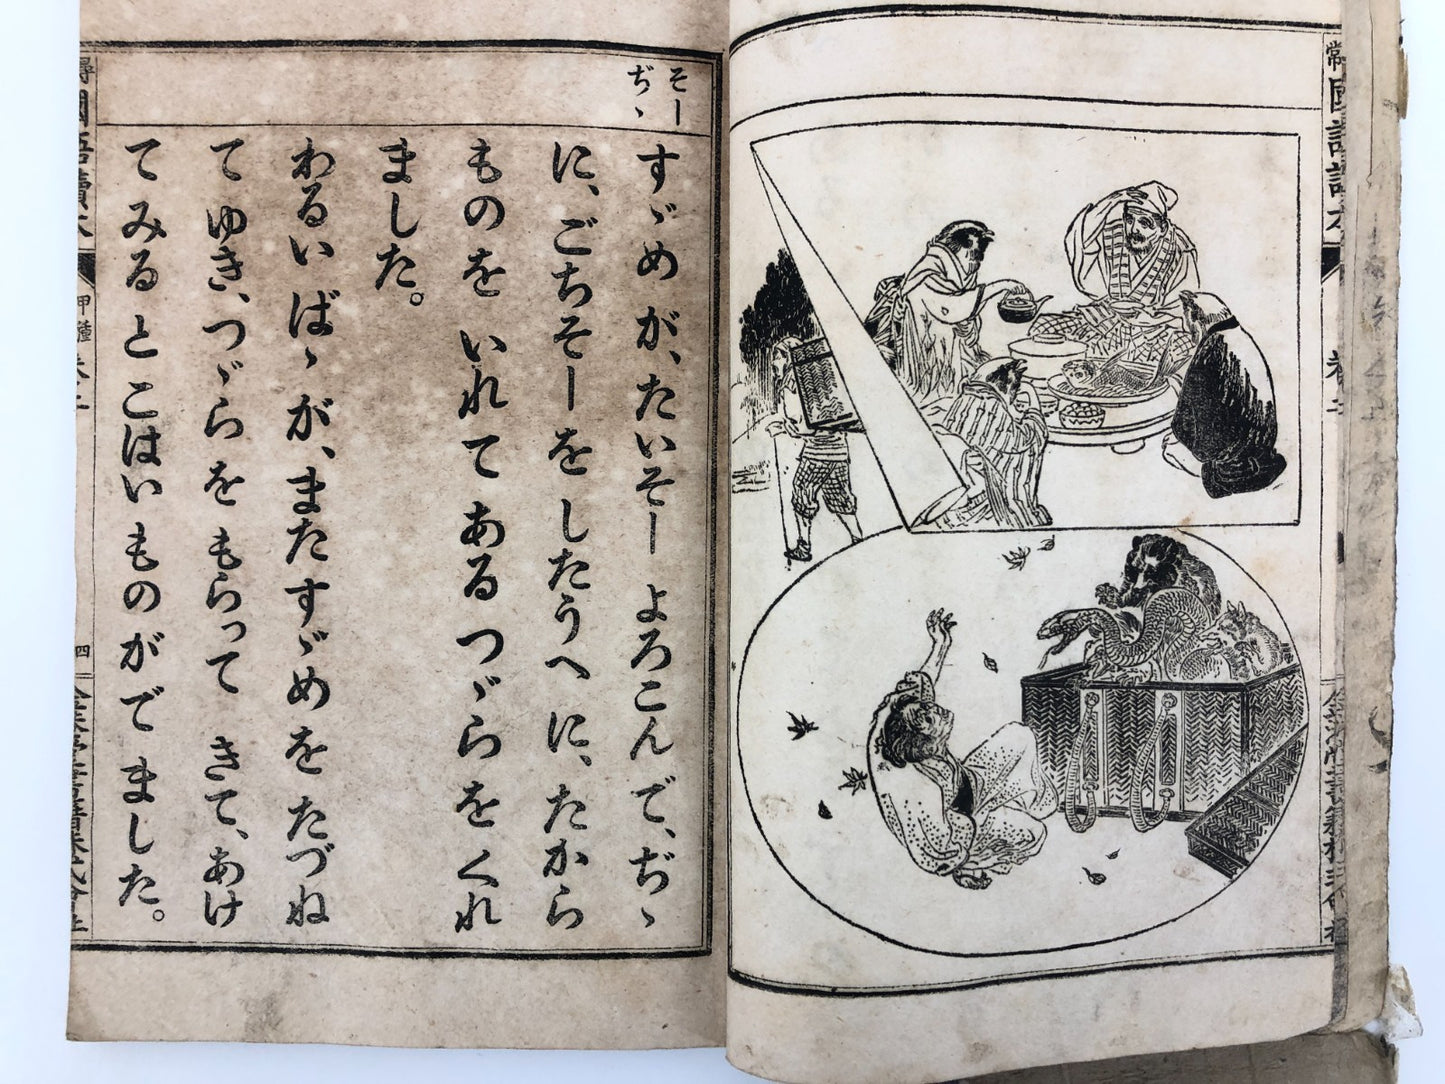 そー
ぢゝ
すゞめが、たいそーよろこんで、ぢゝ
に、ごちそーをしたうへに、たから
ものをいれてあるつゞらをくれ
ました。
わるいばゝが、またすゞめをたづね
てゆき、つゞらをもらってきて、あけ
てみるとこはいものがでました。
國語讀本
甲種
四
常